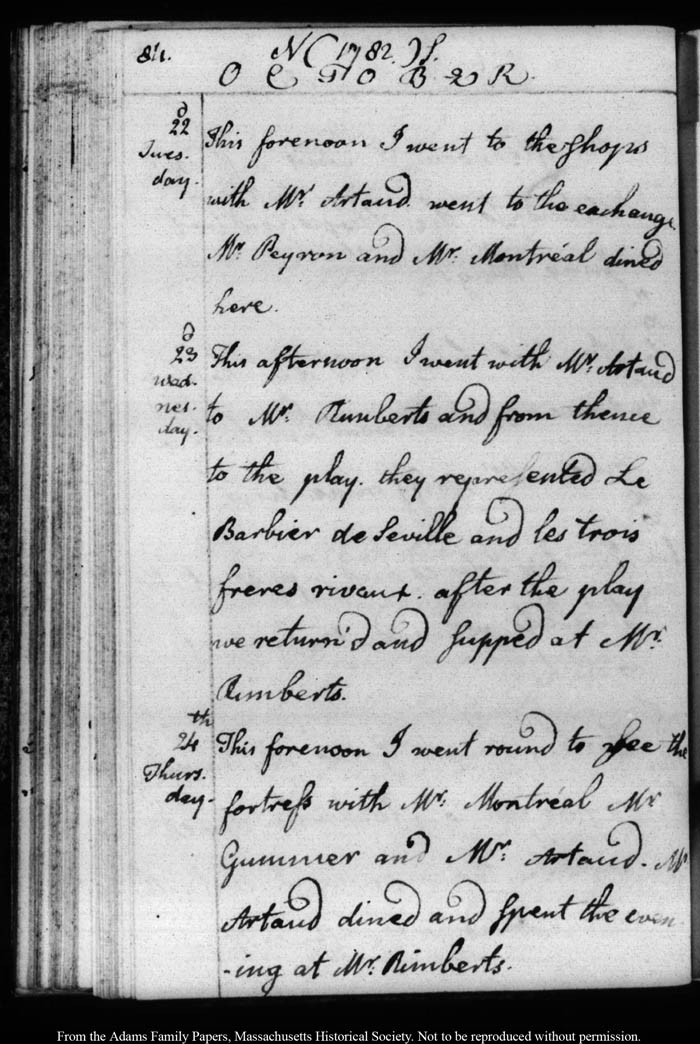 84.
N (1782.) S.
OCTOBER.
d
22
Tues-
day.
This forenoon I went to the shops
with Mr. Artaud. went to the exchange.
Mr. Peyron and Mr. Montréal dined
here.
d
23
Wed-
nes-
day.
This afternoon I went with Mr. Artaud
to Mr. Rimberts and from thence
to the play. they represented Le
Barbier de Seville and les trois
freres rivaux. after the play
we return'd and supped at Mr.
Rimberts.
th
24
Thurs-
day.
This forenoon I went round to see the
fortress with Mr. Montréal Mr.
Gummer and Mr. Artaud. Mr
Artaud dined and spent the even
-ing at Mr. Rimberts.
From the Adams Family Papers, Massachusetts Historical Society. Not to be reproduced without permission.